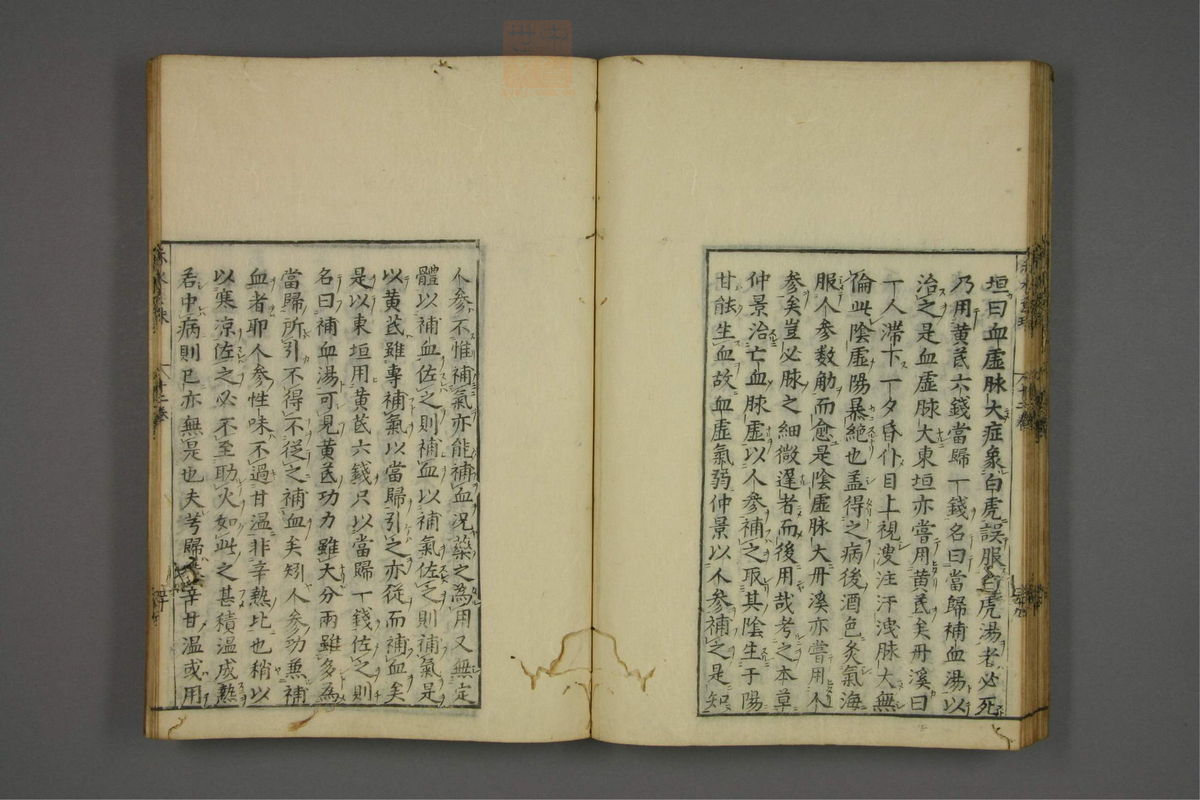 垣曰血虛脉大症象白虎誤服白虎湯者必死
乃用黄芪六錢當歸一錢名曰當歸補血湯以
治之是血虛脉大東垣亦嘗用黄芪矣丹溪曰
一人滞下一夕昏仆目上視溲注汗洩脉大無
倫此陰虛陽暴絶也盖得之病後酒色灸氣海
服人参数觔而愈是陰虛脉大丹溪亦嘗用人
参矣豈必脉之細微遲者而後用哉考之本草
仲景治亡血脉虛以人參補之取其陰生于陽
甘能生血故血虛氣弱仲景以人參補之是知
人參不惟補氣亦能補血况藥之為用又無定
體以補血佐之則補血以補氣佐之則補氣是
以黄芪雖專補氣以當歸引之亦從而補血矣
是以東垣用黄芪六錢只以當歸一錢佐之則
名曰補血湯可見黄芪功力雖大分兩雖多為
當歸所引不得不從之補血矣矧人參功兼補
血者耶人參性味不過甘温非辛熱比也稍以
以寒凉佐之必不至助火如此之甚積温成熱
若中病則已亦無是也夫芎歸辛甘温或用